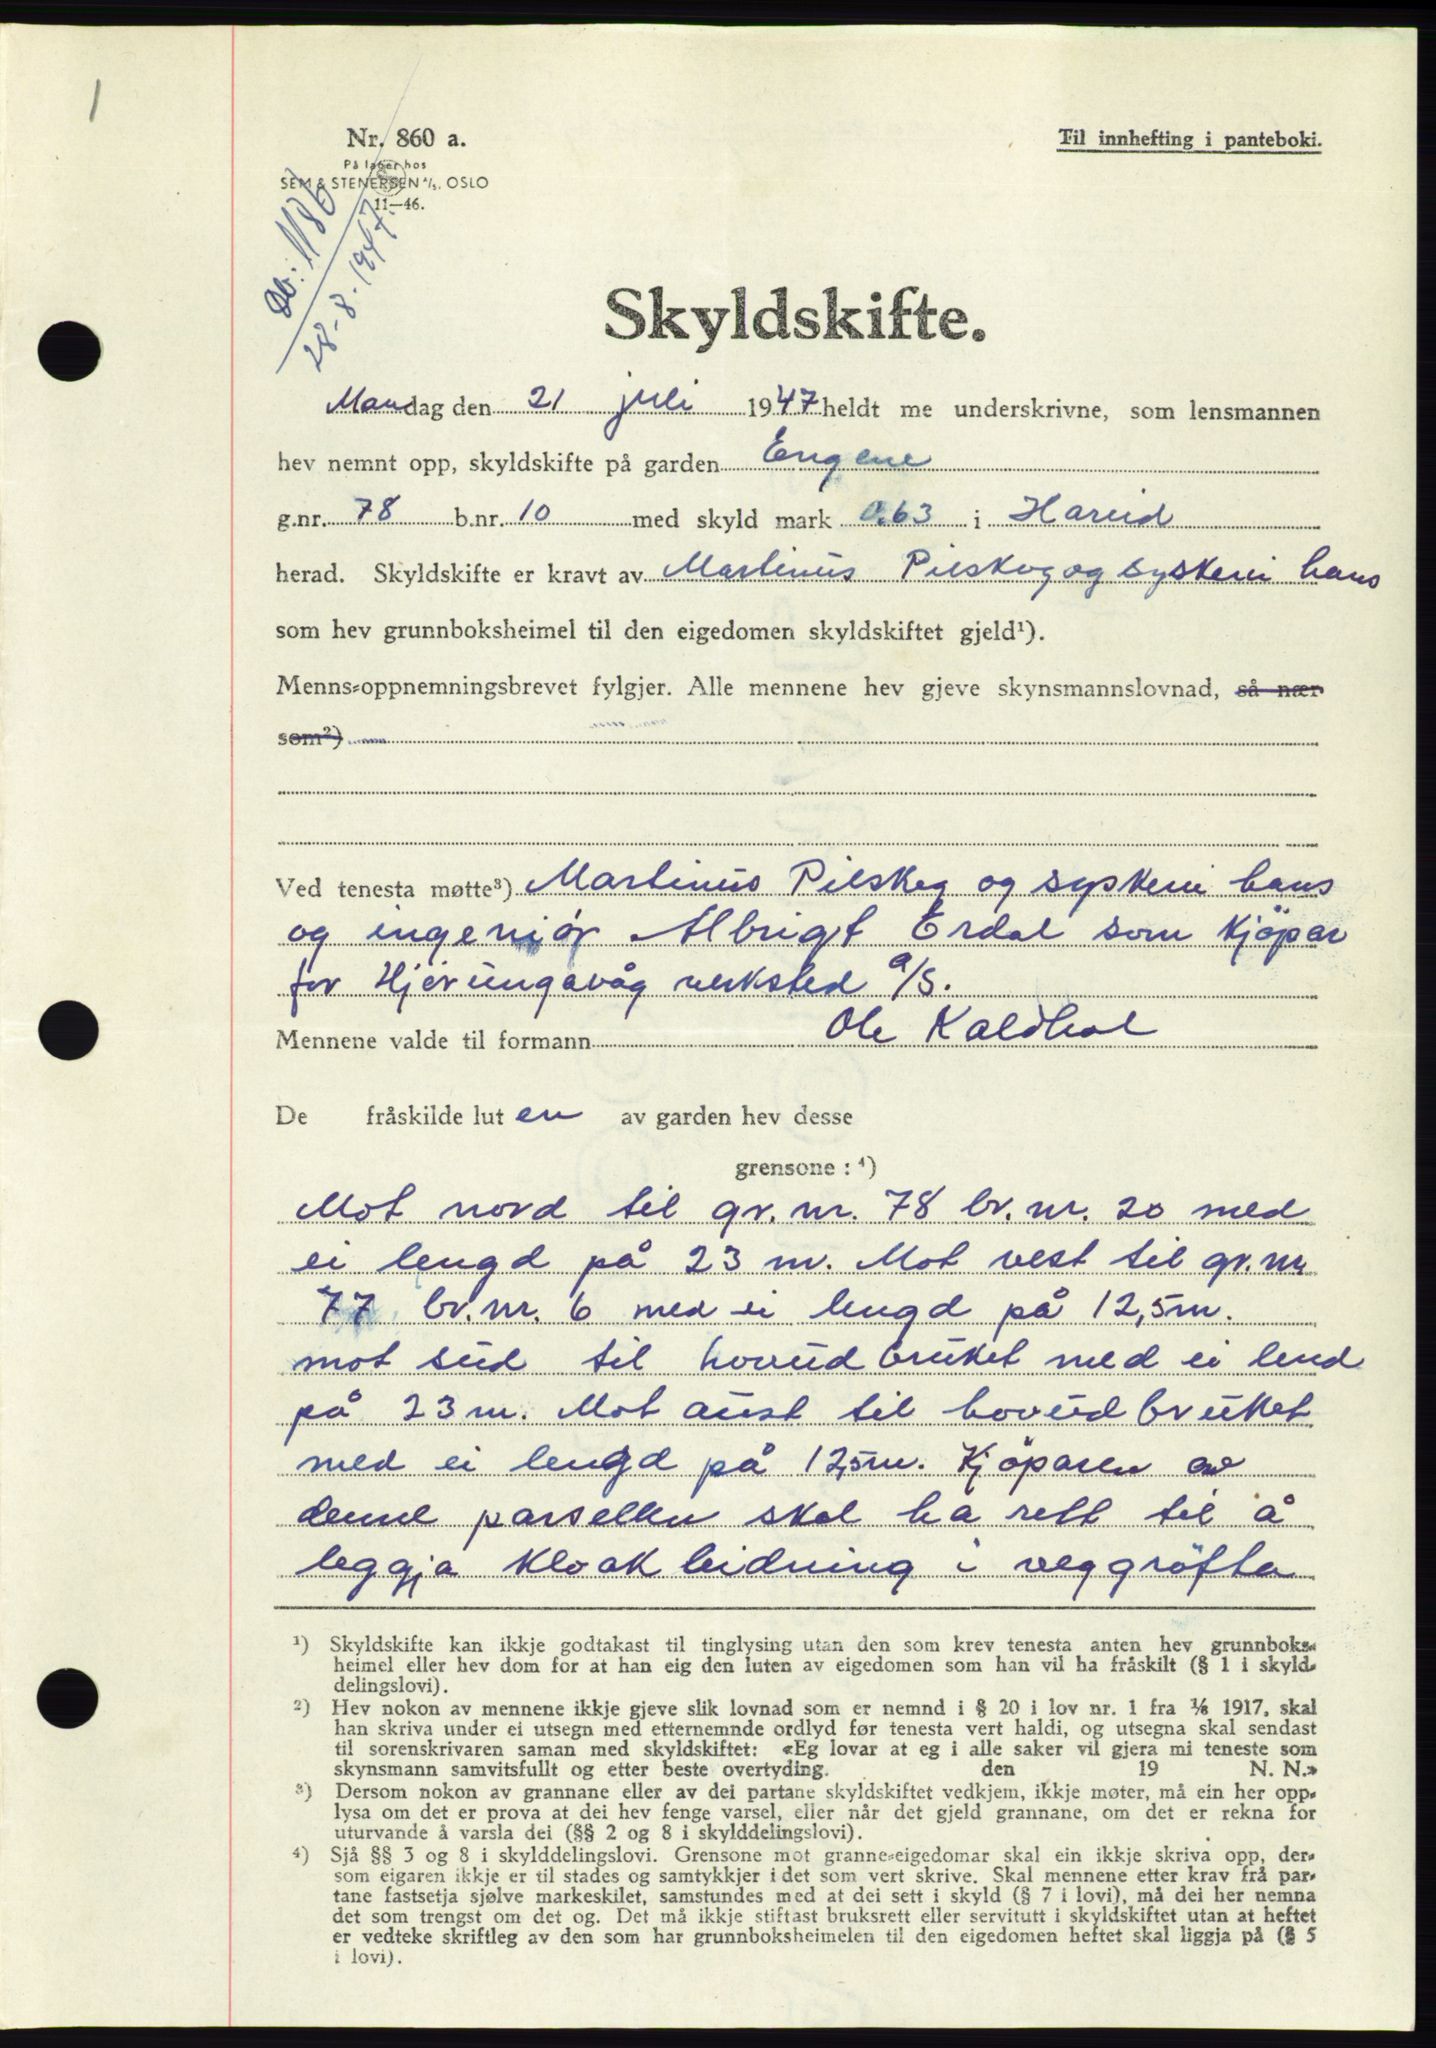 1
Nr. 860 a.
Til innhefting i panteboki.
På lager hos
SEM & STENERSEN A/S. OSLO
11—46.
Db: 1186
28-8-1947
Skyldskifte.
Mandag den 21 juli 1947 heldt me underskrivne, som lensmannen
hev nemnt opp, skyldskifte på garden Engene
g.nr. 78 b.nr. 10 med skyld mark 0.63 i Hareid
herad. Skyldskifte er kravt av Martinus Pilskog og syskeni hans
som hev grunnboksheimel til den eigedomen skyldskiftet gjeld¹).
Menns-oppnemningsbrevet fylgjer. Alle mennene hev gjeve skynsmannslovnad, så nær
som²)
Ved tenesta møtte³) Martinus Pilskog og syskeni hans
og ingeniør Albrigt Erdal som Kjöpar
for Hjörungavåg verksted a/s.
Mennene valde til formann Ole Kaldhol
De fråskilde lut en av garden hev desse
grensone: ⁴)
Mot nord til gr. nr. 78 br. nr. 20 med
ei lengd på 23 m. Mot vest til gr. nr
77 br. nr. 6 med ei lengd på 12,5m.
mot sud til hovudbruket med ei lend
på 23 m. Mot aust til hovudbruket
med ei lengd på 12,5m. Kjöparen av
denne parsellen skal ha rett til å
leggja kloakleidning i veggröfta
¹) Skyldskifte kan ikkje godtakast til tinglysing utan den som krev tenesta anten hev grunnboks-
heimel eller hev dom for at han eig den luten av eigedomen som han vil ha fråskilt (§ 1 i skyld-
delingslovi).
²) Hev nokon av mennene ikkje gjeve slik lovnad som er nemnd i § 20 i lov nr. 1 fra ⅛ 1917, skal
han skriva under ei utsegn med etternemnde ordlyd før tenesta vert haldi, og utsegna skal sendast
til sorenskrivaren saman med skyldskiftet: «Eg lovar at eg i alle saker vil gjera mi teneste som
skynsmann samvitsfullt og etter beste overtyding. den 19 N. N.»
³) Dersom nokon av grannane eller av dei partane skyldskiftet vedkjem, ikkje møter, må ein her opp-
lysa om det er prova at dei hev fenge varsel, eller når det gjeld grannane, om det er rekna for
uturvande å varsla dei (§§ 2 og 8 i skylddelingslovi).
⁴) Sjå §§ 3 og 8 i skylddelingslovi. Grensone mot granne-eigedomar skal ein ikkje skriva opp, der-
som eigaren ikkje er til stades og samtykkjer i det som vert skrive. Skal mennene etter krav frå par-
tane fastsetja sjølve markeskilet, samstundes med at dei sett i skyld (§ 7 i lovi), må dei her nemna
det som trengst om det og. Det må ikkje stiftast bruksrett eller servitutt i skyldskiftet utan at heftet
er vedteke skriftleg av den som har grunnboksheimelen til den eigedomen heftet skal liggja på (§ 5
i lovi).